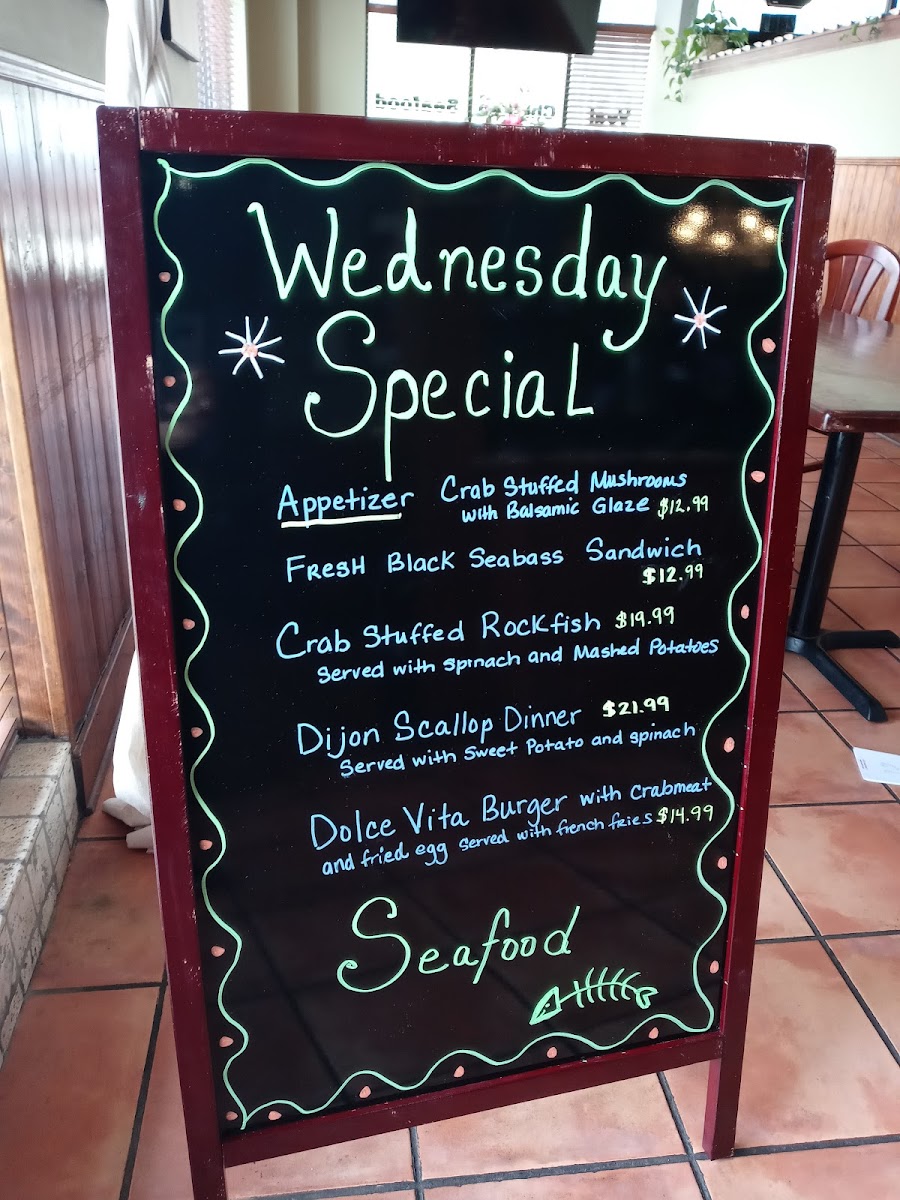 Seafood
Wednesday
Special
Appetizer Crab Stuffed Mushrooms
with Balsamic Glaze $12.99
Fresh Black Seabass Sandwich
$12.99
Crab Stuffed Rockfish $19.99
Served with spinach and Mashed Potatoes
Dijon Scallop Dinner $21.99
Served with Sweet Potato and spinach
Dolce Vita Burger with Crabmeat
and fried egg served with french fries $14.99
Seafood